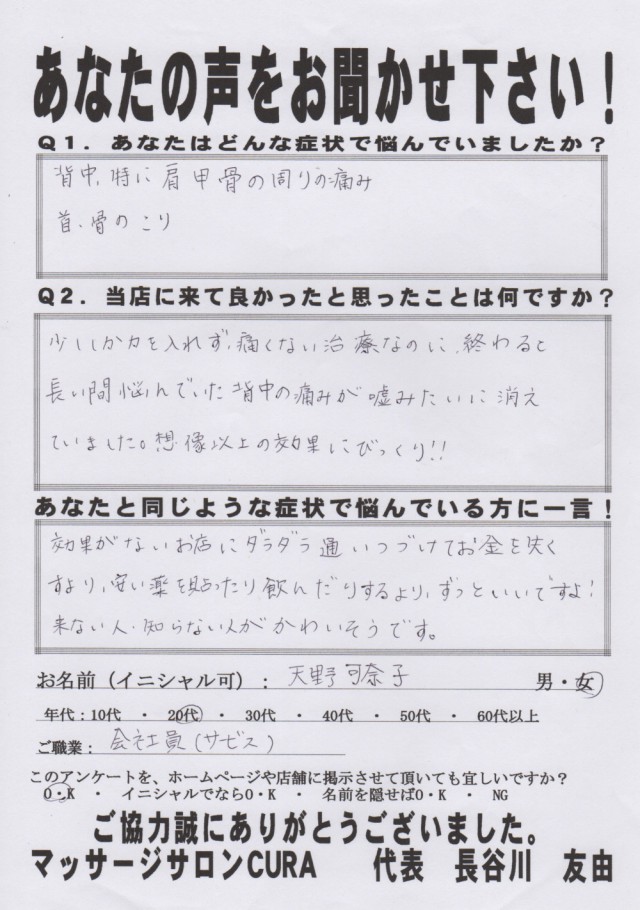 あなたの声をお聞かせ下さい！
Q1．あなたはどんな症状で悩んでいましたか？
背中、特に肩甲骨の周りの痛み
首、骨のこり
Q2．当店に来て良かったと思ったことは何ですか？
少ししか力を入れず、痛くない治療なのに、終わると
長い間悩んでいた背中の痛みが嘘みたいに消え
ていました。想像以上の効果にびっくり!!
あなたと同じような症状で悩んでいる方に一言！
効果がないお店にダラダラ通いつづけてお金を失く
すより、安い薬を貼ったり飲んだりするより、ずっといいですよ！
来ない人・知らない人がかわいそうです。
お名前（イニシャル可）： 天野可奈子 男・女
年代：10代 ・ 20代 ・ 30代 ・ 40代 ・ 50代 ・ 60代以上
ご職業： 会社員（サービス）
このアンケートを、ホームページや店舗に掲示させて頂いても宜しいですか？
O・K ・ イニシャルでならO・K ・ 名前を隠せばO・K ・ NG
ご協力誠にありがとうございました。
マッサージサロンCURA 代表 長谷川 友由